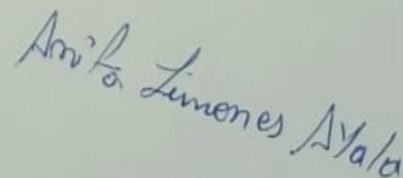 Anita Limones Ayala